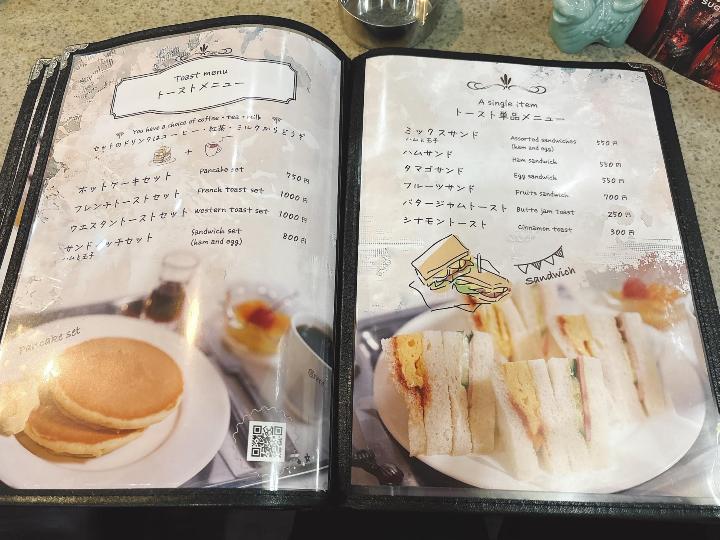 Toast menu
トーストメニュー
You have a choice of coffee・tea・milk
セットのドリンクはコーヒー・紅茶・ミルクからどうぞ
+
ホットケーキセット pancake set 750円
フレンチトーストセット French toast set 1000円
ウエスタントーストセット western toast set 1000円
サンドイッチセット Sandwich set 800円
ハムと玉子 (ham and egg)
pancake set
A single item
トースト単品メニュー
ミックスサンド Assorted sandwiches 550円
ハムと玉子 (ham and egg)
ハムサンド Ham sandwich 550円
タマゴサンド Egg sandwich 550円
フルーツサンド Fruits sandwich 700円
バタージャムトースト Butte jam toast 250円
シナモントースト Cinnamon toast 300円
Sandwich